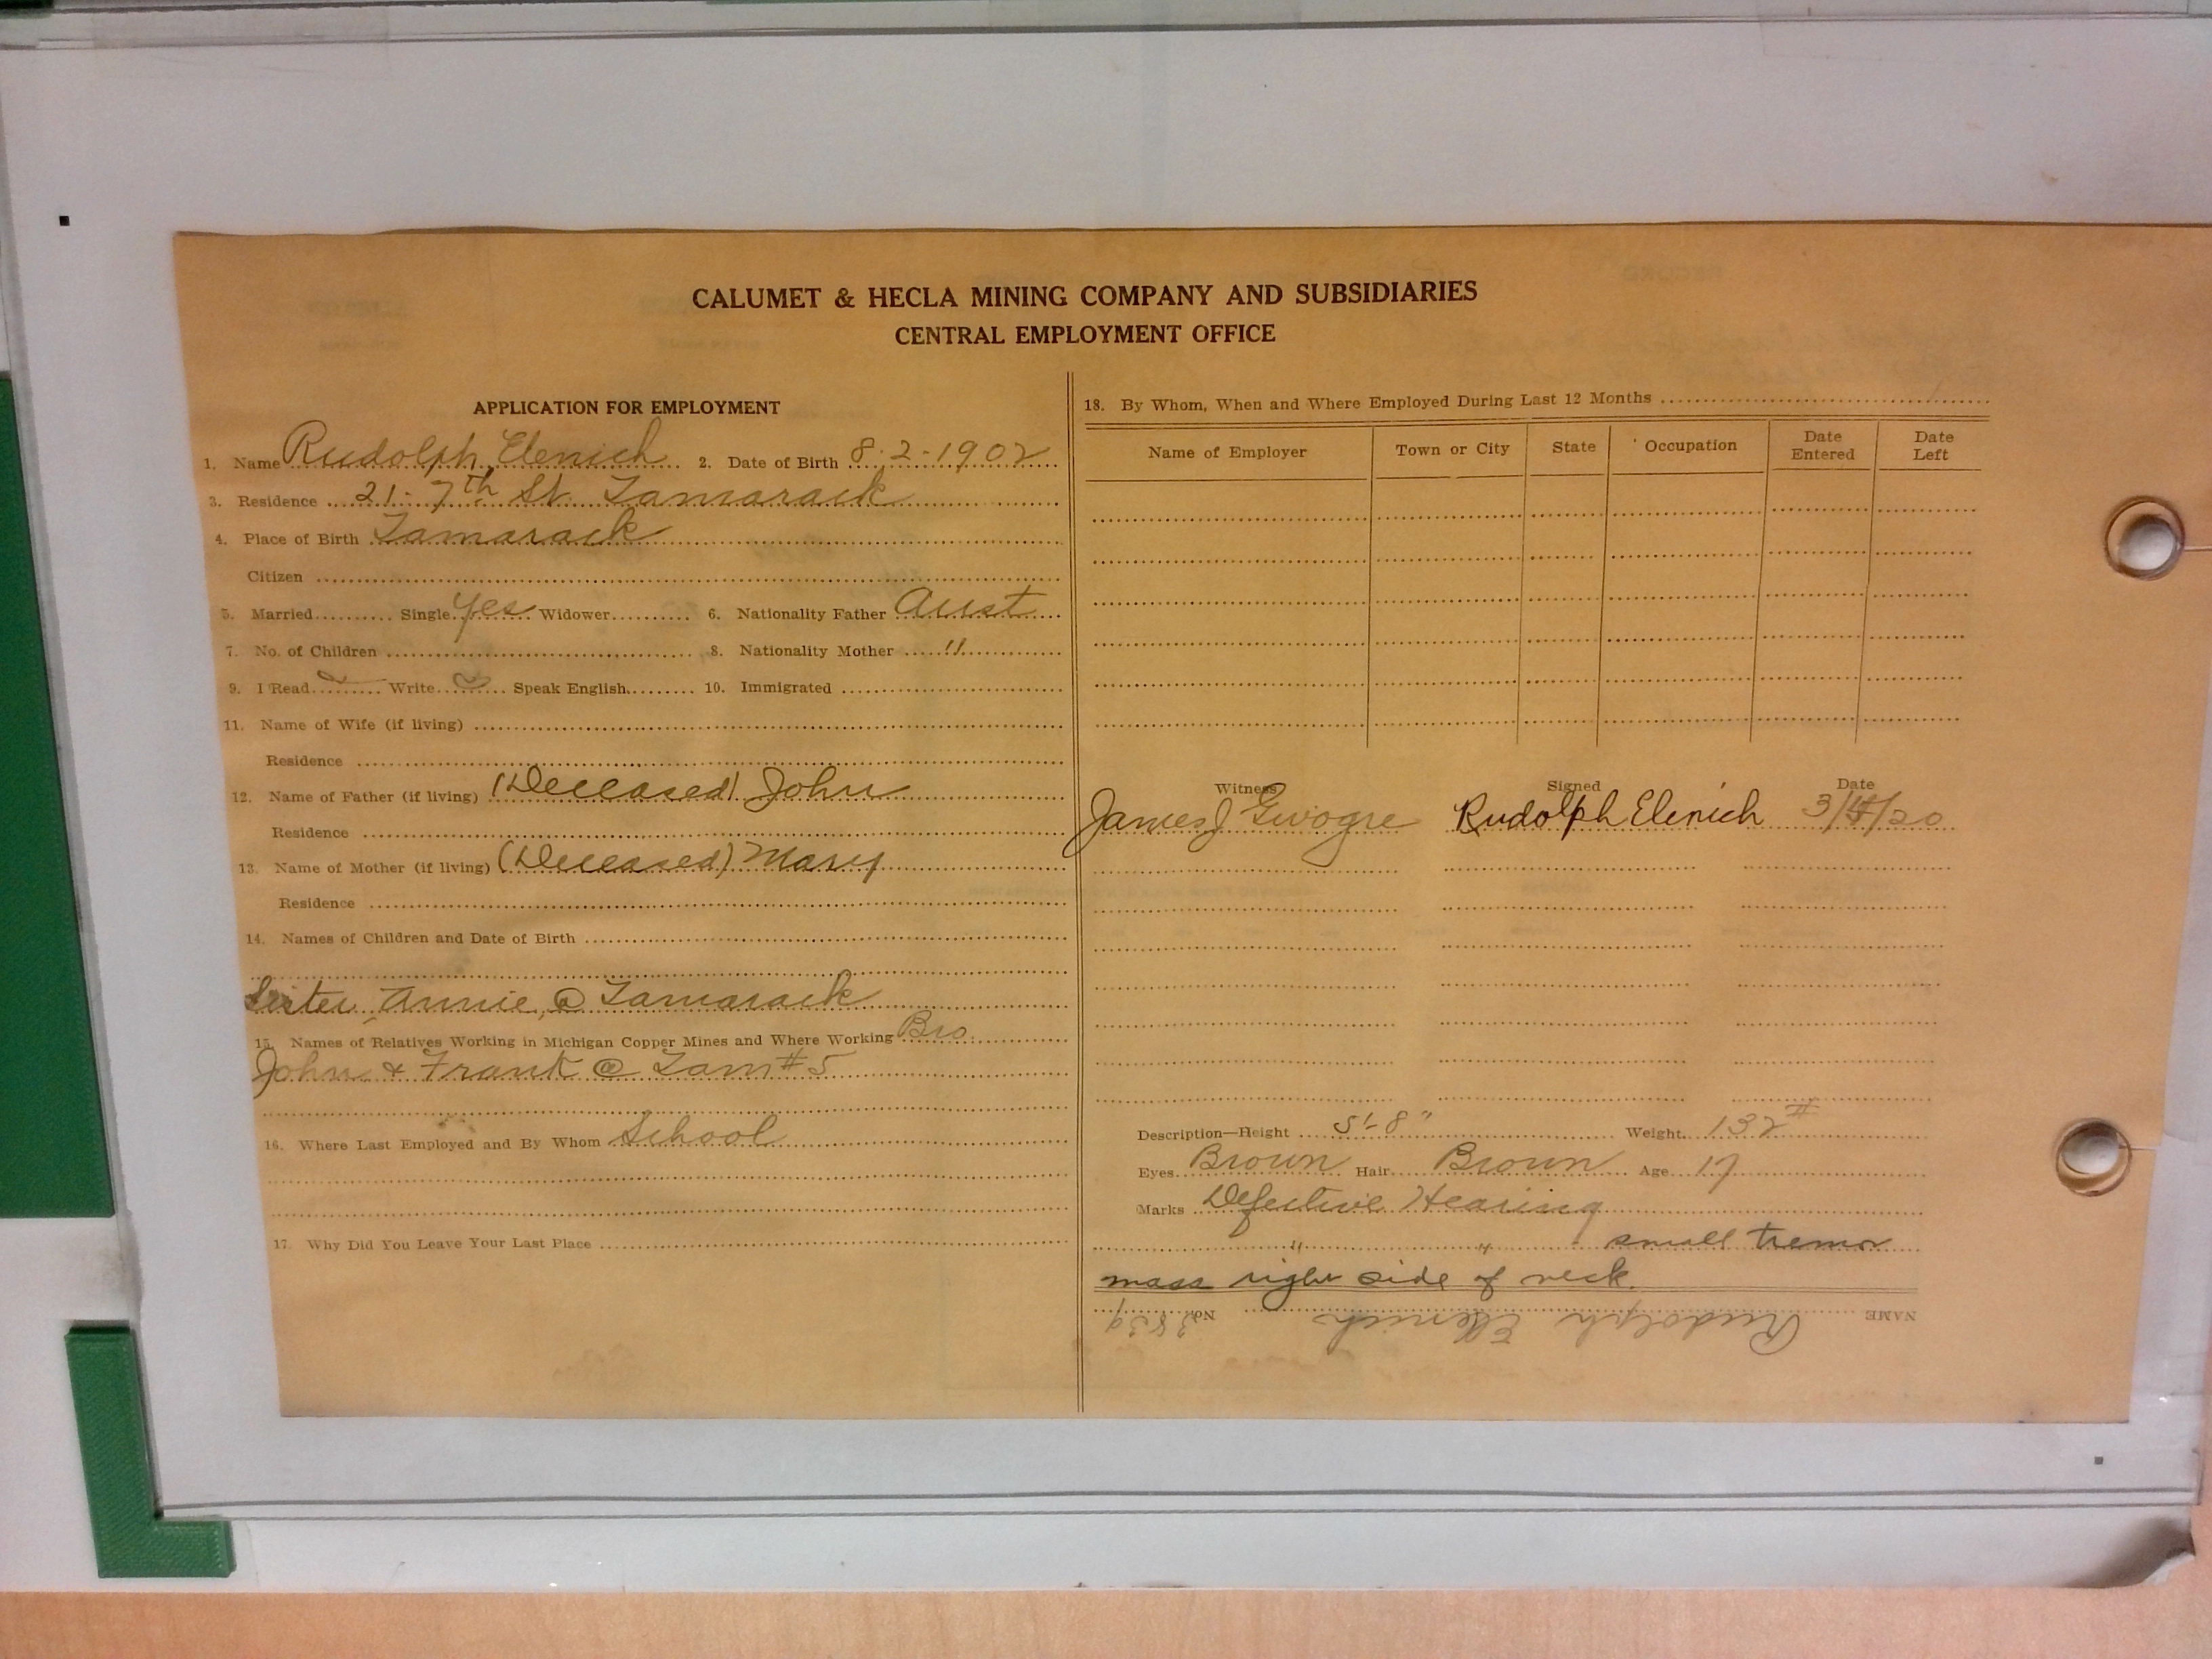 CALUMET & HECLA MINING COMPANY AND SUBSIDIARIES
CENTRAL EMPLOYMENT OFFICE
APPLICATION FOR EMPLOYMENT
1. Name Rudolph Elenich 2. Date of Birth 8-2-1902
3. Residence 21-7th St. Tamarack
4. Place of Birth Tamarack
Citizen
5. Married Single yes Widower 6. Nationality Father Aust
7. No. of Children 8. Nationality Mother "
9. I Read Write Speak English 10. Immigrated
11. Name of Wife (if living)
Residence
12. Name of Father (if living) (Deceased) John
Residence
13. Name of Mother (if living) (Deceased) Mary
Residence
14. Names of Children and Date of Birth
Sister Annie @ Tamarack
15. Names of Relatives Working in Michigan Copper Mines and Where Working Bro.
John & Frank @ Tam #5
16. Where Last Employed and By Whom School
17. Why Did You Leave Your Last Place
18. By Whom, When and Where Employed During Last 12 Months
Name of Employer Town or City State Occupation Date Entered Date Left
Witness Signed Date
James J Rudolph Elenich 3/ /20
Description—Height 5'-8" Weight 132#
Eyes Brown Hair Brown Age 17
Marks Defective Hearing
" " small
mass right side of neck.
NAME Rudolph Elenich No. 3839